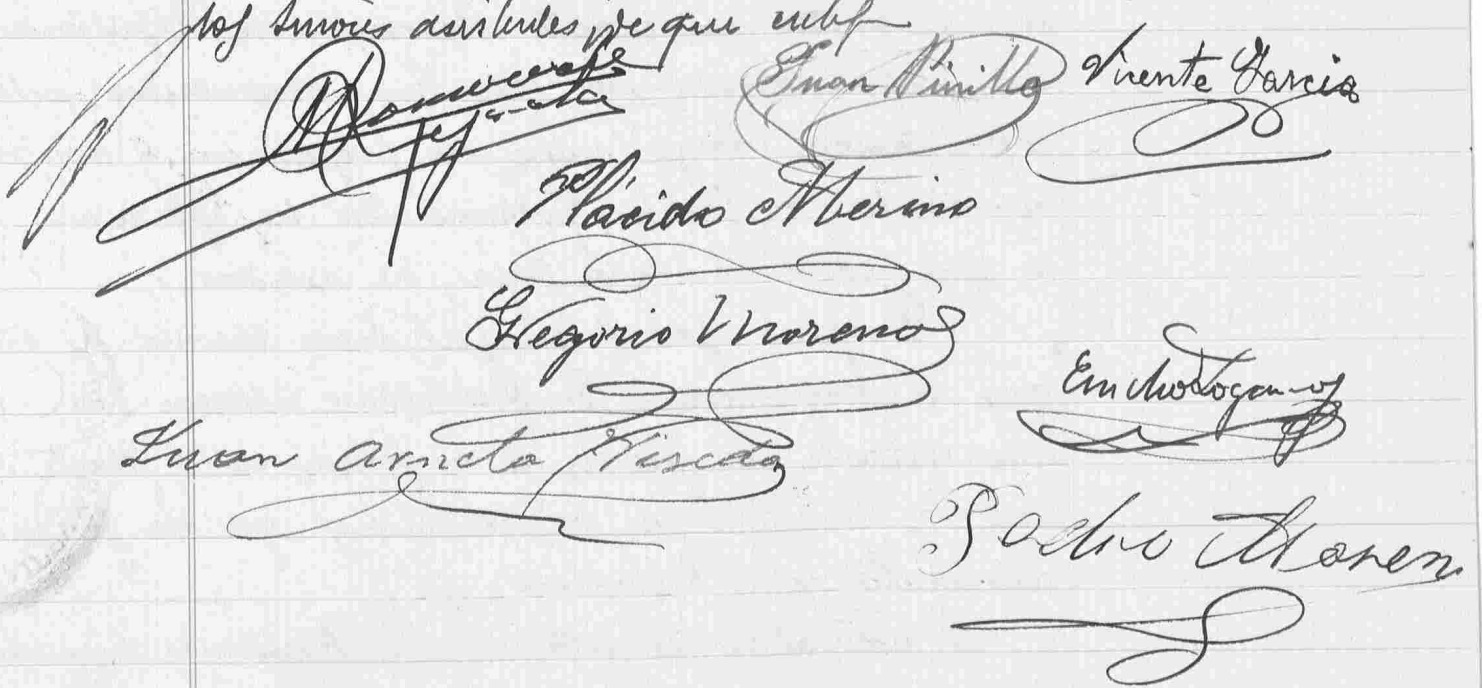 los señores asistentes, de que certif
Juan Pinilla Vicente Garcia
Plácido Merino
Gregorio Moreno
Juan Arrieta Viseda
Pedro Moren